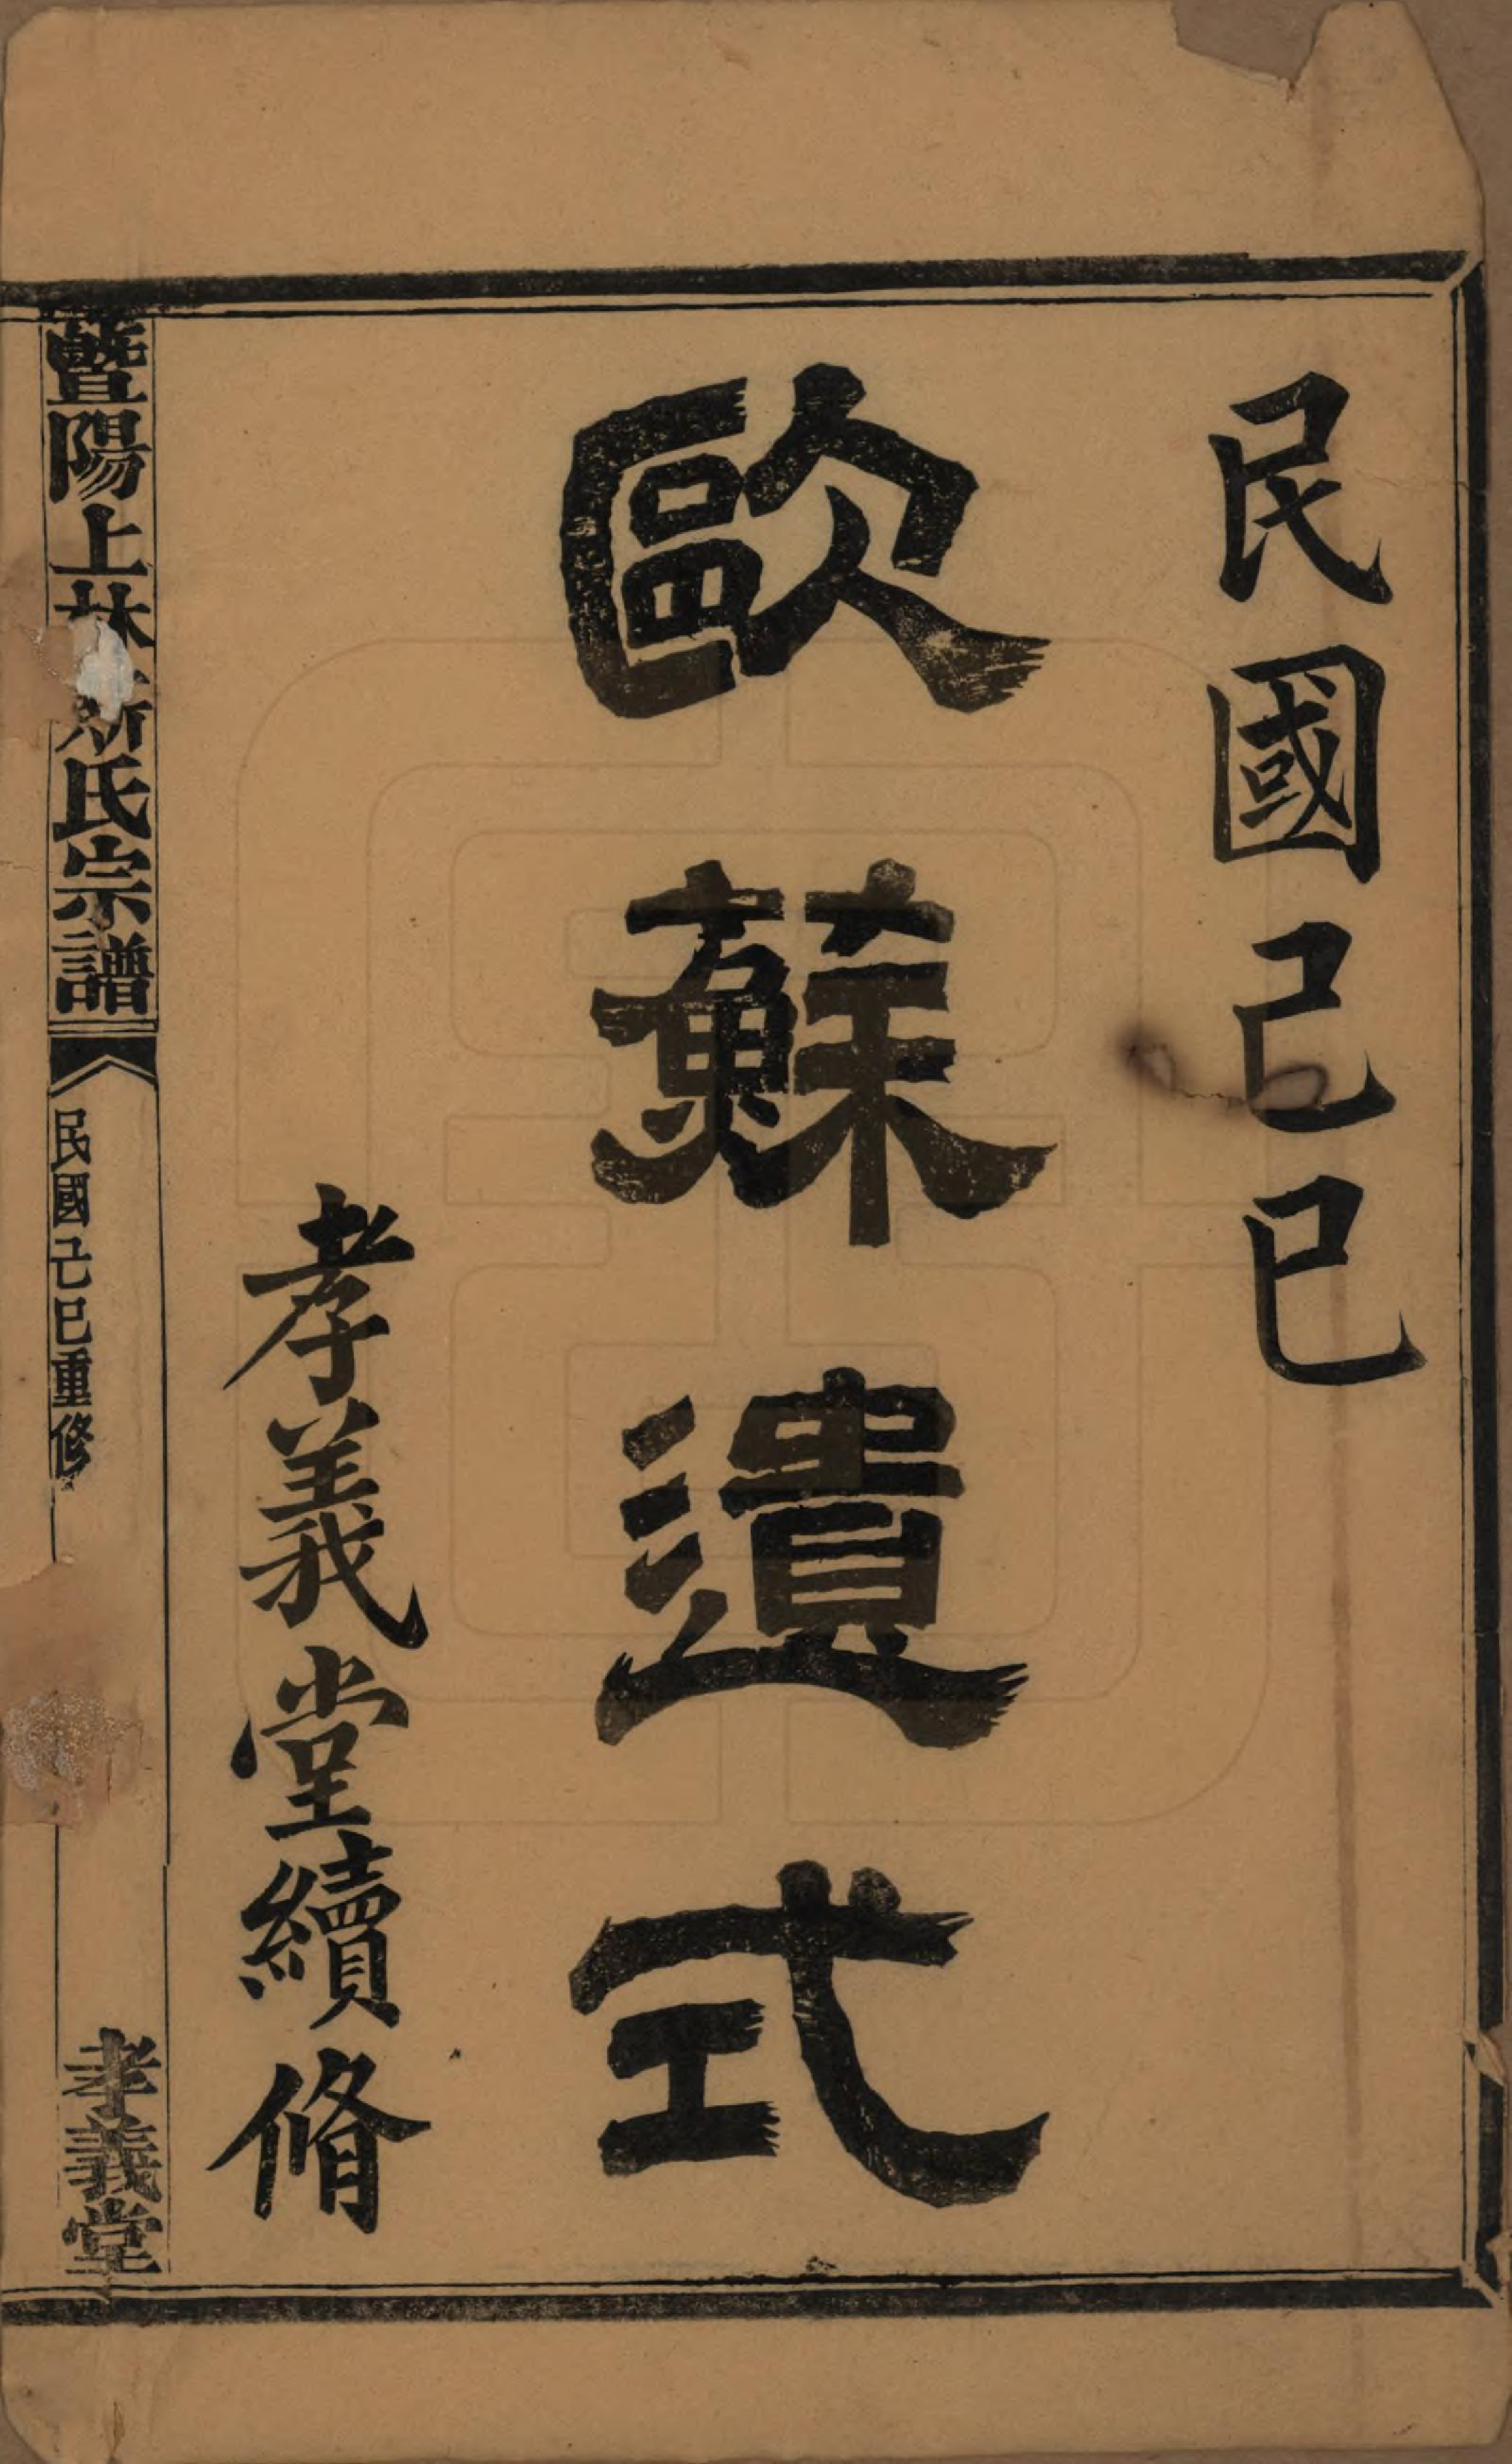 民國己巳
歐蘇遺式
孝義堂續脩
暨陽上林斯氏宗譜
民國己巳重修
孝義堂